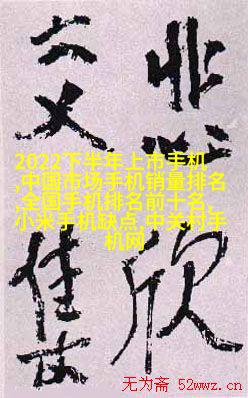 悲欣
交集
2022下半年上市手机
,中国市场手机销量排名
,全国手机排名前十名,
小米手机缺点,中关村手
机网
无为斋 52wwz.cn